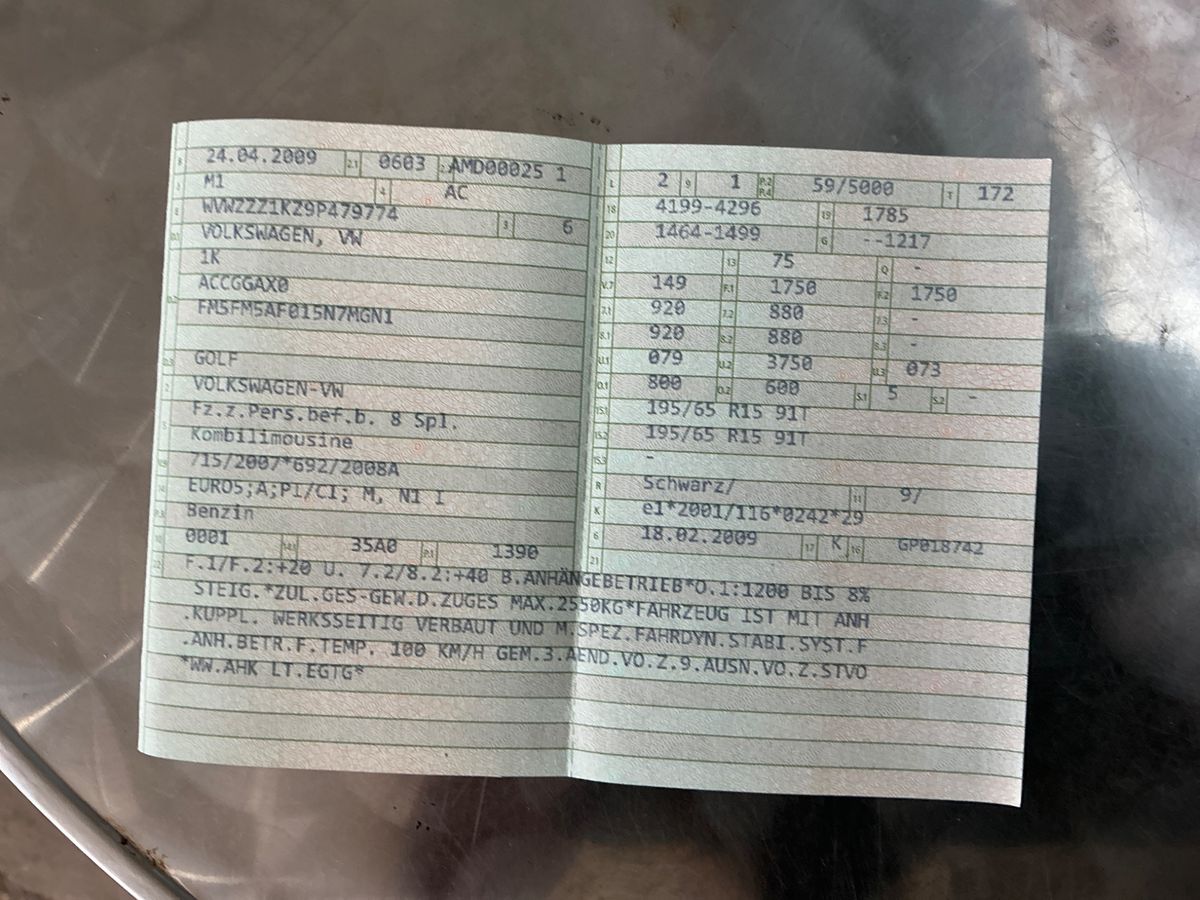 B 24.04.2009 2.1 0603 2.2 AMD00025 1
J M1 4 AC
E WVWZZZ1KZ9P479774 3 6
D.1 VOLKSWAGEN, VW
1K
D.2 ACCGGAX0
FM5FM5AF015N7MGN1
D.3 GOLF
2 VOLKSWAGEN-VW
Fz.z.Pers.bef.b. 8 Spl.
5 Kombilimousine
V.9 715/2007*692/2008A
14 EURO5;A;PI/CI; M, N1 I
P.3 Benzin
10 0001 14.1 35A0 P.1 1390
L 2 9 1 P.2 P.4 59/5000 T 172
18 4199-4296 19 1785
20 1464-1499 G --1217
12 13 75 Q -
V.7 149 F.1 1750 F.2 1750
7.1 920 7.2 880 7.3 -
8.1 920 8.2 880 8.3 -
U.1 079 U.2 3750 U.3 073
O.1 800 O.2 600 S.1 5 S.2 -
15.1 195/65 R15 91T
15.2 195/65 R15 91T
15.3 -
R Schwarz/ 11 9/
K e1*2001/116*0242*29
6 18.02.2009 17 K 16 GP018742
21
22 F.1/F.2:+20 U. 7.2/8.2:+40 B.ANHÄNGEBETRIEB*O.1:1200 BIS 8%
STEIG.*ZUL.GES-GEW.D.ZUGES MAX.2550KG*FAHRZEUG IST MIT ANH
.KUPPL. WERKSSEITIG VERBAUT UND M.SPEZ.FAHRDYN.STABI.SYST.F
.ANH.BETR.F.TEMP. 100 KM/H GEM.3.AEND.VO.Z.9.AUSN.VO.Z.STVO
*WW.AHK LT.EGTG*